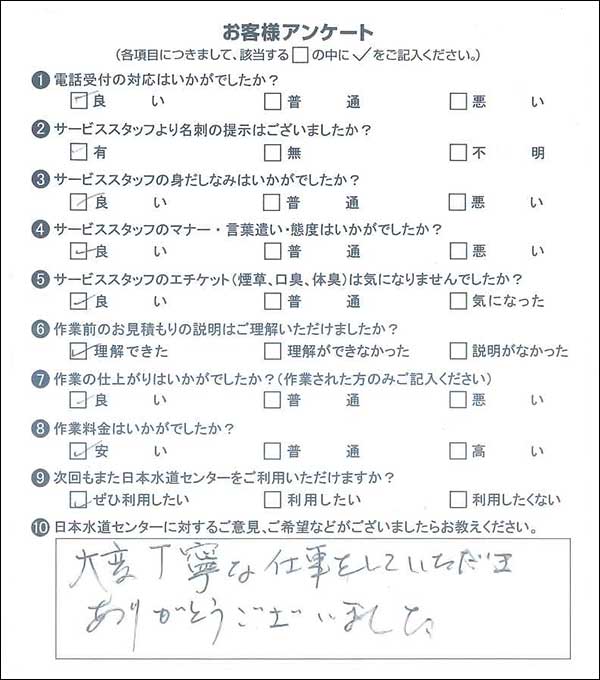 お客様アンケート
(各項目につきまして、該当する□の中に✓をご記入ください。)
❶ 電話受付の対応はいかがでしたか?
☑良い □普通 □悪い
❷ サービススタッフより名刺の提示はございましたか?
☑有 □無 □不明
❸ サービススタッフの身だしなみはいかがでしたか?
☑良い □普通 □悪い
❹ サービススタッフのマナー・言葉遣い・態度はいかがでしたか?
☑良い □普通 □悪い
❺ サービススタッフのエチケット(煙草、口臭、体臭)は気になりませんでしたか?
☑良い □普通 □気になった
❻ 作業前のお見積もりの説明はご理解いただけましたか?
☑理解できた □理解ができなかった □説明がなかった
❼ 作業の仕上がりはいかがでしたか?(作業された方のみご記入ください)
☑良い □普通 □悪い
❽ 作業料金はいかがでしたか?
☑安い □普通 □高い
❾ 次回もまた日本水道センターをご利用いただけますか?
☑ぜひ利用したい □利用したい □利用したくない
❿ 日本水道センターに対するご意見、ご希望などがございましたらお教えください。
大変丁寧な仕事をしていただき
ありがとうございました